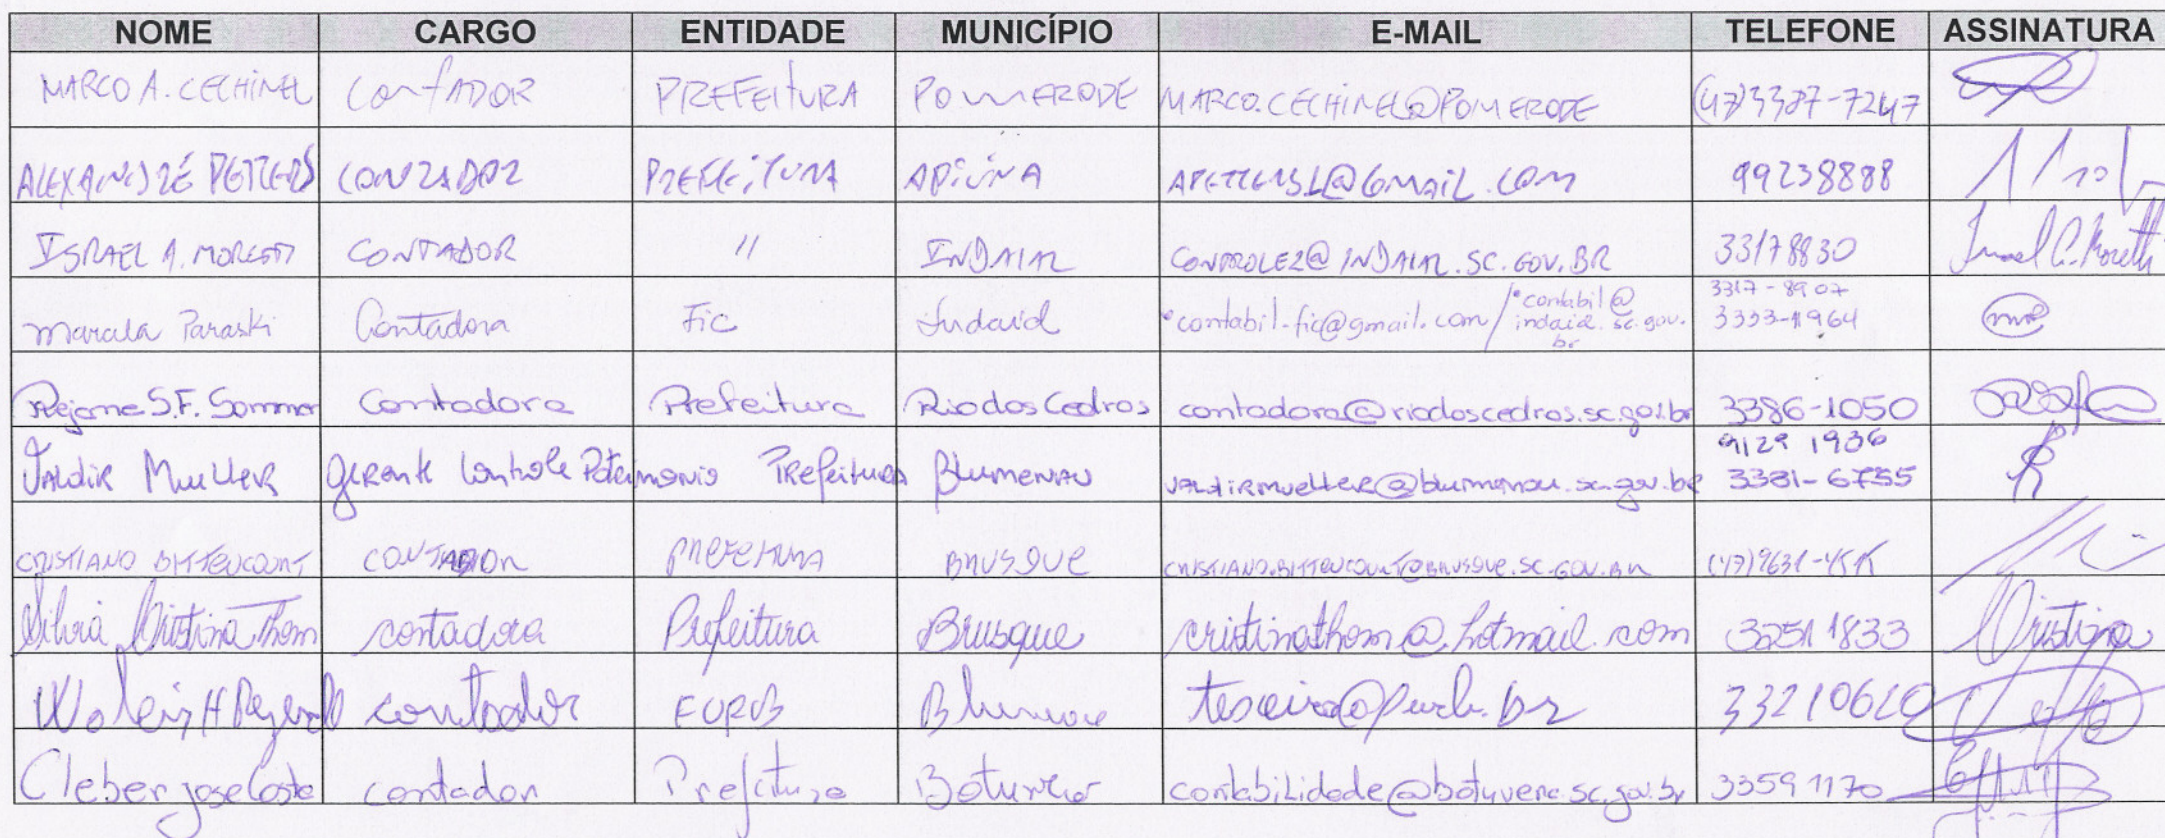 NOME CARGO ENTIDADE MUNICÍPIO E-MAIL TELEFONE ASSINATURA
MARCO A. CECHINEL CONTADOR PREFEITURA POMERODE MARCO.CECHINEL@POMERODE (47)3387-7247
ALEXANDRÉ PETTERS CONTADOR PREFEITURA APIÚNA APETTERSL@GMAIL.COM 99238888
ISRAEL A. MORETTI CONTADOR " INDAIAL CONTROLE2@INDAIAL.SC.GOV.BR 33178830
Marcula Paraski Contadora Fic Indaial contabil.fic@gmail.com / contabil@indaial.sc.gov.br 3317-8907
3333-1964
Rejane S.F. Sommer Contadora Prefeitura Rio dos Cedros contadora@riodoscedros.sc.gov.br 3386-1050
Valdir Mueller Gerente Controle Patrimonio Prefeitura Blumenau valdirmueller@blumenau.sc.gov.br 9129 1936
3381-6755
CRISTIANO BITTENCOURT CONTADOR PREFEITURA BRUSQUE CRISTIANO.BITTENCOURT@BRUSQUE.SC.GOV.BR
Silvia Cristina Thom contadora Prefeitura Brusque cristinathom@hotmail.com 32511833 Cristina
contador FURB Blumenau 33210620
Cleber jose Costa contador Prefeitura Botuvera contabilidade@botuvera.sc.gov.br 33591170